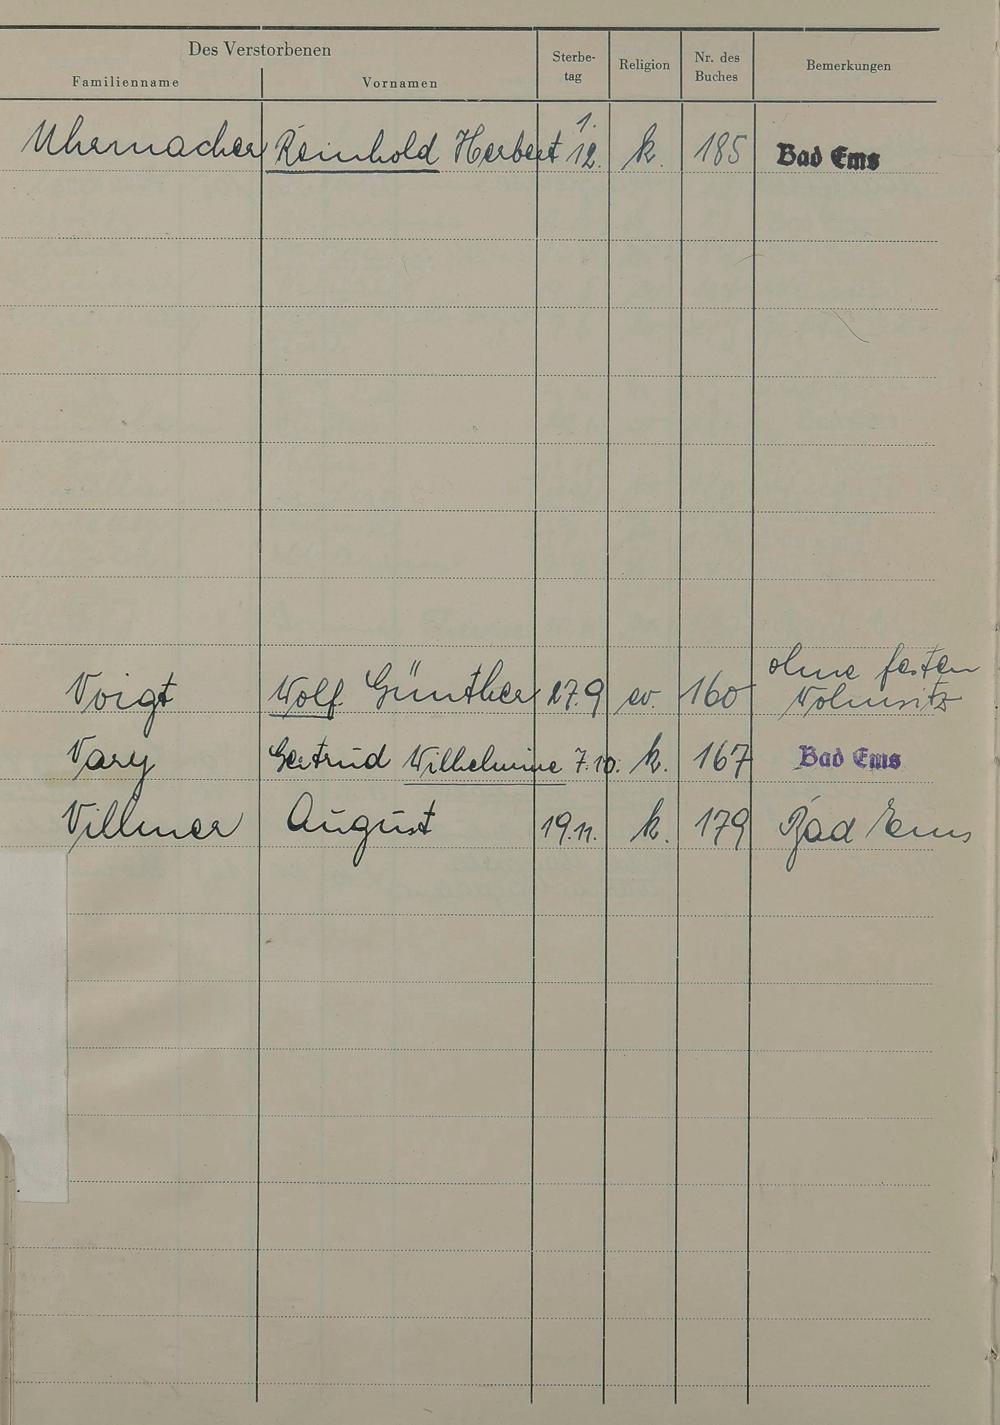 Des Verstorbenen
Familienname Vornamen Sterbe-tag Religion Nr. des Buches Bemerkungen
Uhrmacher Reinhold Herbert 1. 12. k. 185 Bad Ems
Voigt Wolf Günther 27.9 ev. 160 ohne festen Wohnsitz
Vary Gertrud Wilhelmine 7.10. k. 167 Bad Ems
Villmer August 19.11. k. 179 Bad Ems